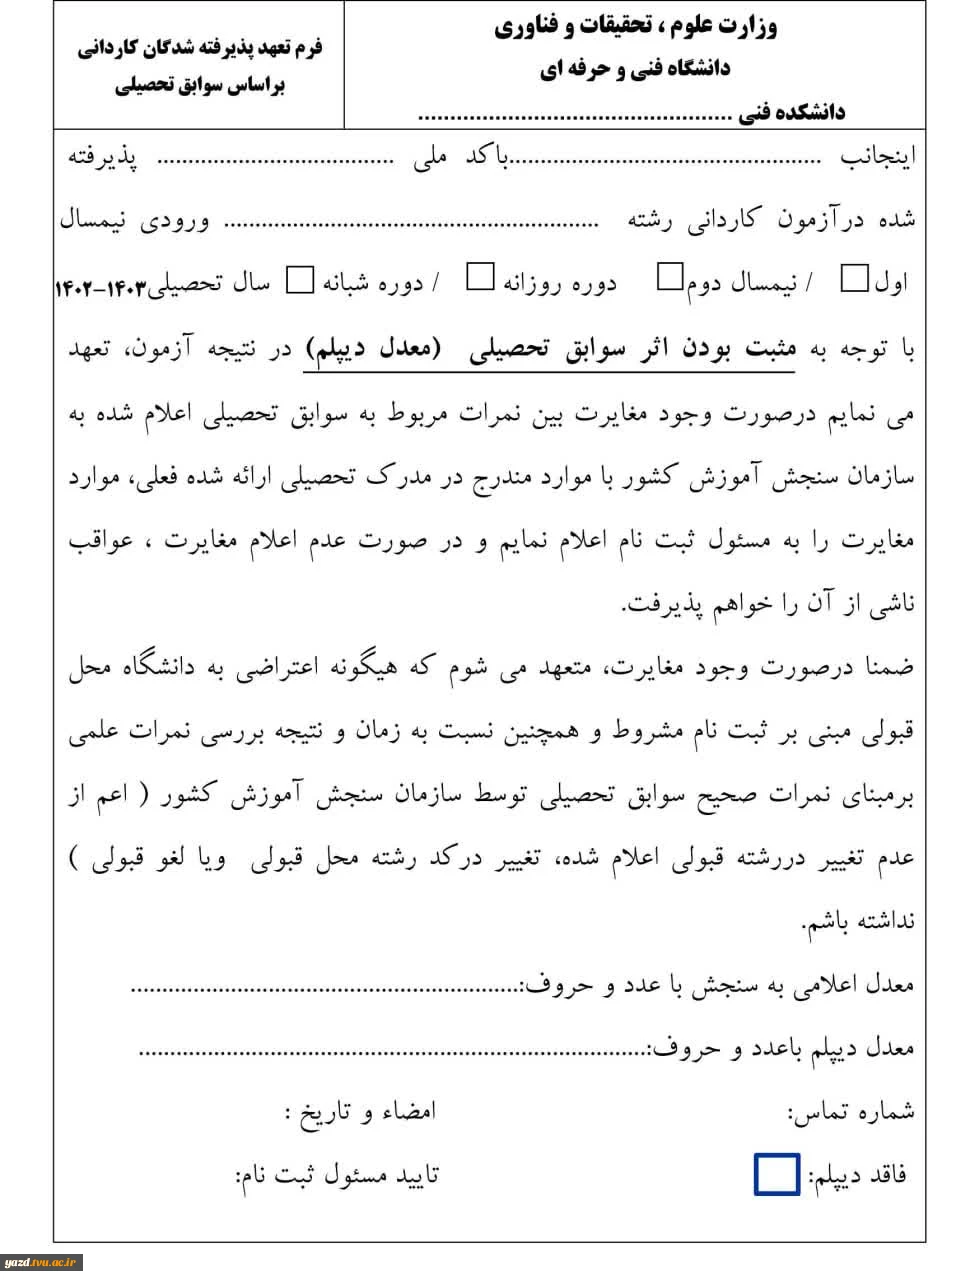 وزارت علوم ، تحقیقات و فناوری
دانشگاه فنی و حرفه ای
دانشکده فنی .................................................
فرم تعهد پذیرفته شدگان کاردانی
براساس سوابق تحصیلی
اینجانب ..................................................باکد ملی ...................................... پذیرفته
شده درآزمون کاردانی رشته ............................................................ ورودی نیمسال
اول □ / نیمسال دوم□ دوره روزانه □ / دوره شبانه □ سال تحصیلی۱۴۰۳-۱۴۰۲
با توجه به مثبت بودن اثر سوابق تحصیلی (معدل دیپلم) در نتیجه آزمون، تعهد
می نمایم درصورت وجود مغایرت بین نمرات مربوط به سوابق تحصیلی اعلام شده به
سازمان سنجش آموزش کشور با موارد مندرج در مدرک تحصیلی ارائه شده فعلی، موارد
مغایرت را به مسئول ثبت نام اعلام نمایم و در صورت عدم اعلام مغایرت ، عواقب
ناشی از آن را خواهم پذیرفت.
ضمنا درصورت وجود مغایرت، متعهد می شوم که هیگونه اعتراضی به دانشگاه محل
قبولی مبنی بر ثبت نام مشروط و همچنین نسبت به زمان و نتیجه بررسی نمرات علمی
برمبنای نمرات صحیح سوابق تحصیلی توسط سازمان سنجش آموزش کشور ( اعم از
عدم تغییر دررشته قبولی اعلام شده، تغییر درکد رشته محل قبولی ویا لغو قبولی )
نداشته باشم.
معدل اعلامی به سنجش با عدد و حروف:..............................................................
معدل دیپلم باعدد و حروف:.................................................................................
شماره تماس: امضاء و تاریخ :
فاقد دیپلم: □ تایید مسئول ثبت نام:
yazd.tvu.ac.ir